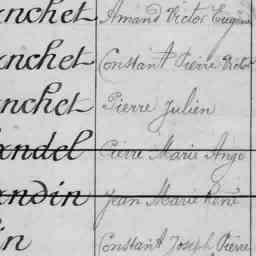 anchet Amand Victor Eugène
anchet Constant Pierre Victor
anchet Pierre Julien
andel Pierre Marie Ange
andin Jean Marie René
in Constant Joseph Pierre